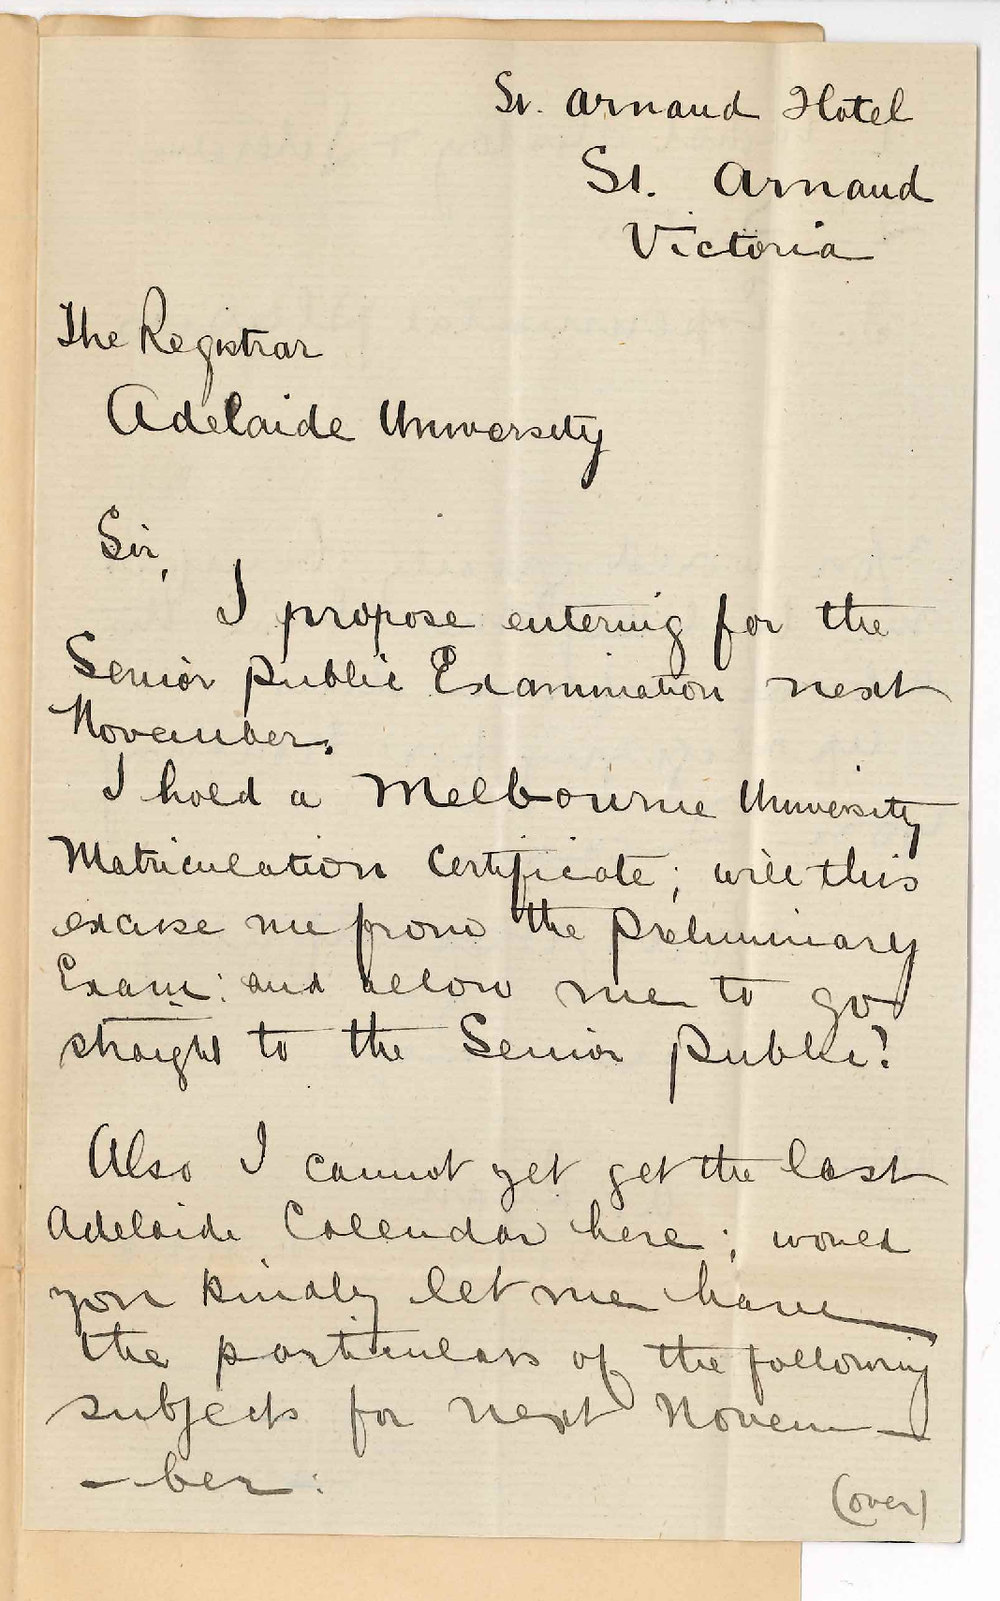 St. Arnaud Hotel
St. Arnaud
Victoria
The Registrar
Adelaide University
Sir,
I propose entering for the
Senior Public Examination next
November.
I hold a Melbourne University
Matriculation Certificate; will this
excuse me from the Preliminary
Exam: and allow me to go
straight to the Senior Public?
Also I cannot yet get the last
Adelaide Calendar here; would
you kindly let me have
the particulars of the following
subjects for next Novem-
-ber:
(over)